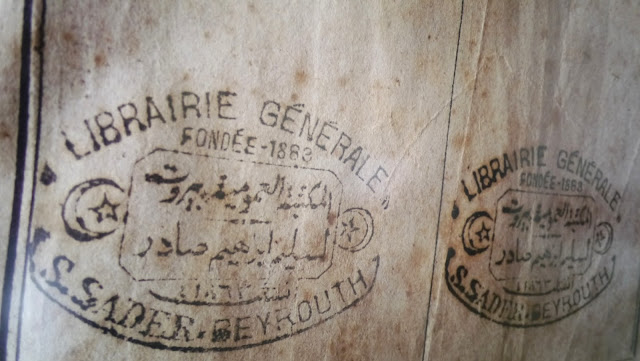 LIBRAIRIE GÉNÉRALE
FONDÉE-1863
المكتبة العمومية بيروت
لسليم ابرهيم صادر
سنة ١٨٦٣
S. SADER. BEYROUTH
LIBRAIRIE GÉNÉRALE
FONDÉE-1863
المكتبة العمومية بيروت
لسليم ابرهيم صادر
سنة ١٨٦٣
S. SADER. BEYROUTH